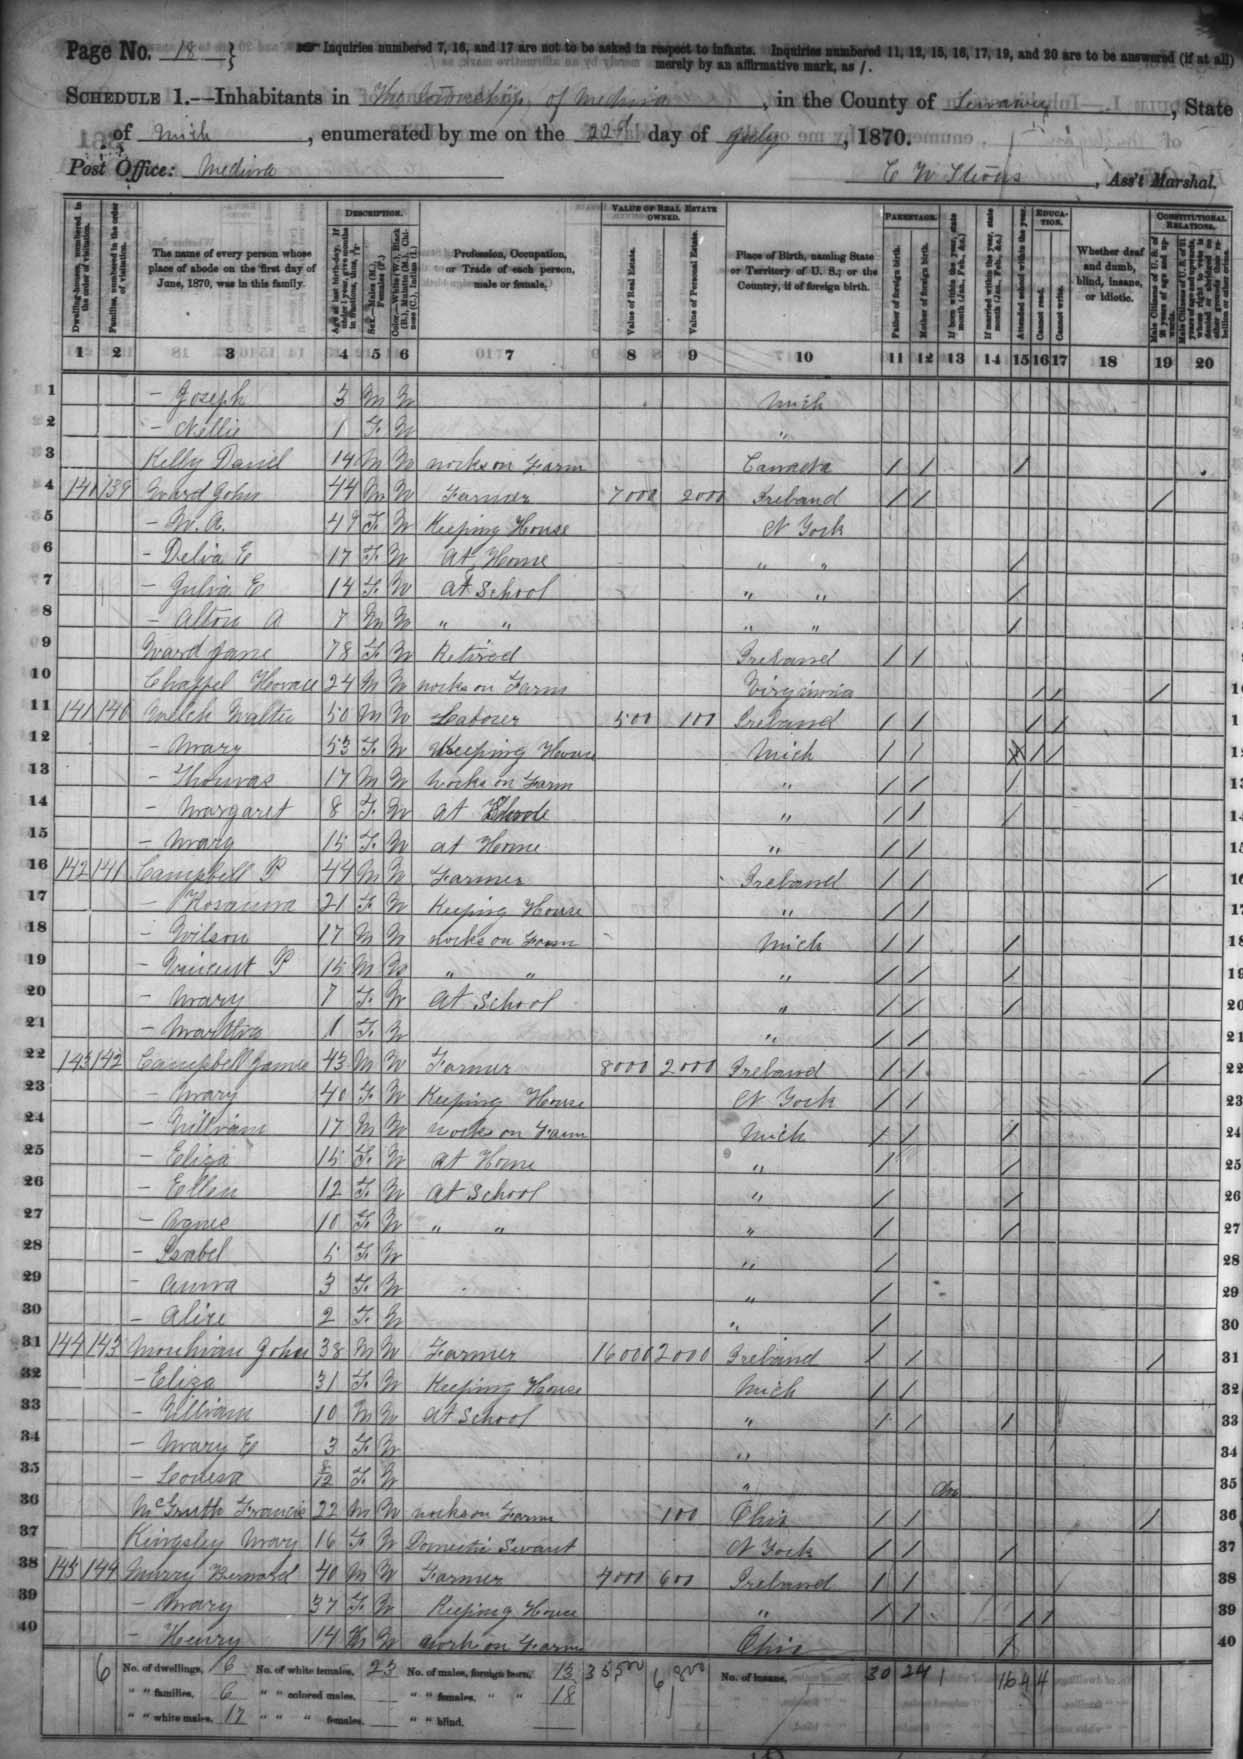 Page No. 18
Inquiries numbered 7, 16, and 17 are not to be asked in respect to infants. Inquiries numbered 11, 12, 15, 16, 17, 19, and 20 are to be answered (if at all)
merely by an affirmative mark, as /.
SCHEDULE 1.—Inhabitants in The Township of Medina, in the County of Lenawee, State
of Mich, enumerated by me on the 22d day of July, 1870.
Post Office: Medina
C W Stross, Ass't Marshal.
Dwelling-houses, numbered in the order of visitation.
Families, numbered in the order of visitation.
The name of every person whose place of abode on the first day of June, 1870, was in this family.
DESCRIPTION.
Age at last birth-day. If under 1 year, give months in fractions, thus, 3/12
Sex.—Males (M.), Females (F.)
Color.—White (W.), Black (B.), Mulatto (M.), Chinese (C.), Indian (I.)
Profession, Occupation, or Trade of each person, male or female.
VALUE OF REAL ESTATE OWNED.
Value of Real Estate.
Value of Personal Estate.
Place of Birth, naming State or Territory of U. S.; or the Country, if of foreign birth.
PARENTAGE.
Father of foreign birth.
Mother of foreign birth.
If born within the year, state month (Jan., Feb., &c.)
If married within the year, state month (Jan., Feb., &c.)
Attended school within the year.
EDUCATION.
Cannot read.
Cannot write.
Whether deaf and dumb, blind, insane, or idiotic.
CONSTITUTIONAL RELATIONS.
Male Citizens of U. S. of 21 years of age and upwards.
Male Citizens of U. S. of 21 years of age and upwards, whose right to vote is denied or abridged on other grounds than rebellion or other crime.
1 2 3 4 5 6 7 8 9 10 11 12 13 14 15 16 17 18 19 20
1 – Joseph 3 M W Mich
2 – Nellie 1 F W "
3 Kelly Daniel 14 M W works on Farm Canada / / / 3
4 140 139 Ward John 44 M W Farmer 7000 2000 Ireland / / / 4
5 – W. A. 49 F W Keeping House N York
6 – Delia E 17 F W At Home " " /
7 – Julia E 14 F W At School " " /
8 – Alton A 7 M W " " " " /
9 Ward Jane 78 F W Retired Ireland / /
10 Chappel Horace 24 M W works on Farm Virginia / / / 10
11 141 140 Welch Walter 50 M W Laborer 500 100 Ireland / / / / 11
12 – Mary 53 F W Keeping House Mich / / / / 12
13 – Thomas 17 M W works on Farm " / / / 13
14 – Margaret 8 F W At School " / / / 14
15 – Mary 15 F W at Home " / / 15
16 142 141 Campbell P 44 M W Farmer Ireland / / / 16
17 – Rosanna 21 F W Keeping House " / / 17
18 – Wilson 17 M W works on Farm Mich / / / 18
19 – Vincent P 15 M W " " " / / / 19
20 – Mary 7 F W At School " / / / 20
21 – Martha 1 F W " / / 21
22 143 142 Campbell James 43 M W Farmer 8000 2000 Ireland / / / 22
23 – Mary 40 F W Keeping House N York / / 23
24 – William 17 M W works on Farm Mich / / / 24
25 – Eliza 15 F W At Home " / / 25
26 – Ellen 12 F W At School " / / 26
27 – Agnes 10 F W " " " / / 27
28 – Isabel 5 F W " / 28
29 – Anna 3 F W " / 29
30 – Alice 2 F W " / 30
31 144 143 John 38 M W Farmer 16000 2000 Ireland / / / 31
32 – Eliza 31 F W Keeping House Mich / / 32
33 – William 10 M W At School " / / / 33
34 – Mary E 3 F W " 34
35 – Louisa 8/12 F W " 35
36 McGrath Francis 22 M W works on Farm 100 Ohio / / / 36
37 Kingsley Mary 16 F W Domestic Servant N York / / / 37
38 145 144 Murry Bernard 40 M W Farmer 4000 600 Ireland / / 38
39 – Mary 37 F W Keeping House " / / / / 39
40 – Henry 14 M W work on Farm Ohio / 40
6 No. of dwellings, 6 No. of white females, 23 No. of males, foreign born, 13 35,500 6,800 No. of insane, 30 24 1 16 4 4
" " families, 6 " " colored males, " " females, " " 18
" " white males, 17 " " " females, " " blind,